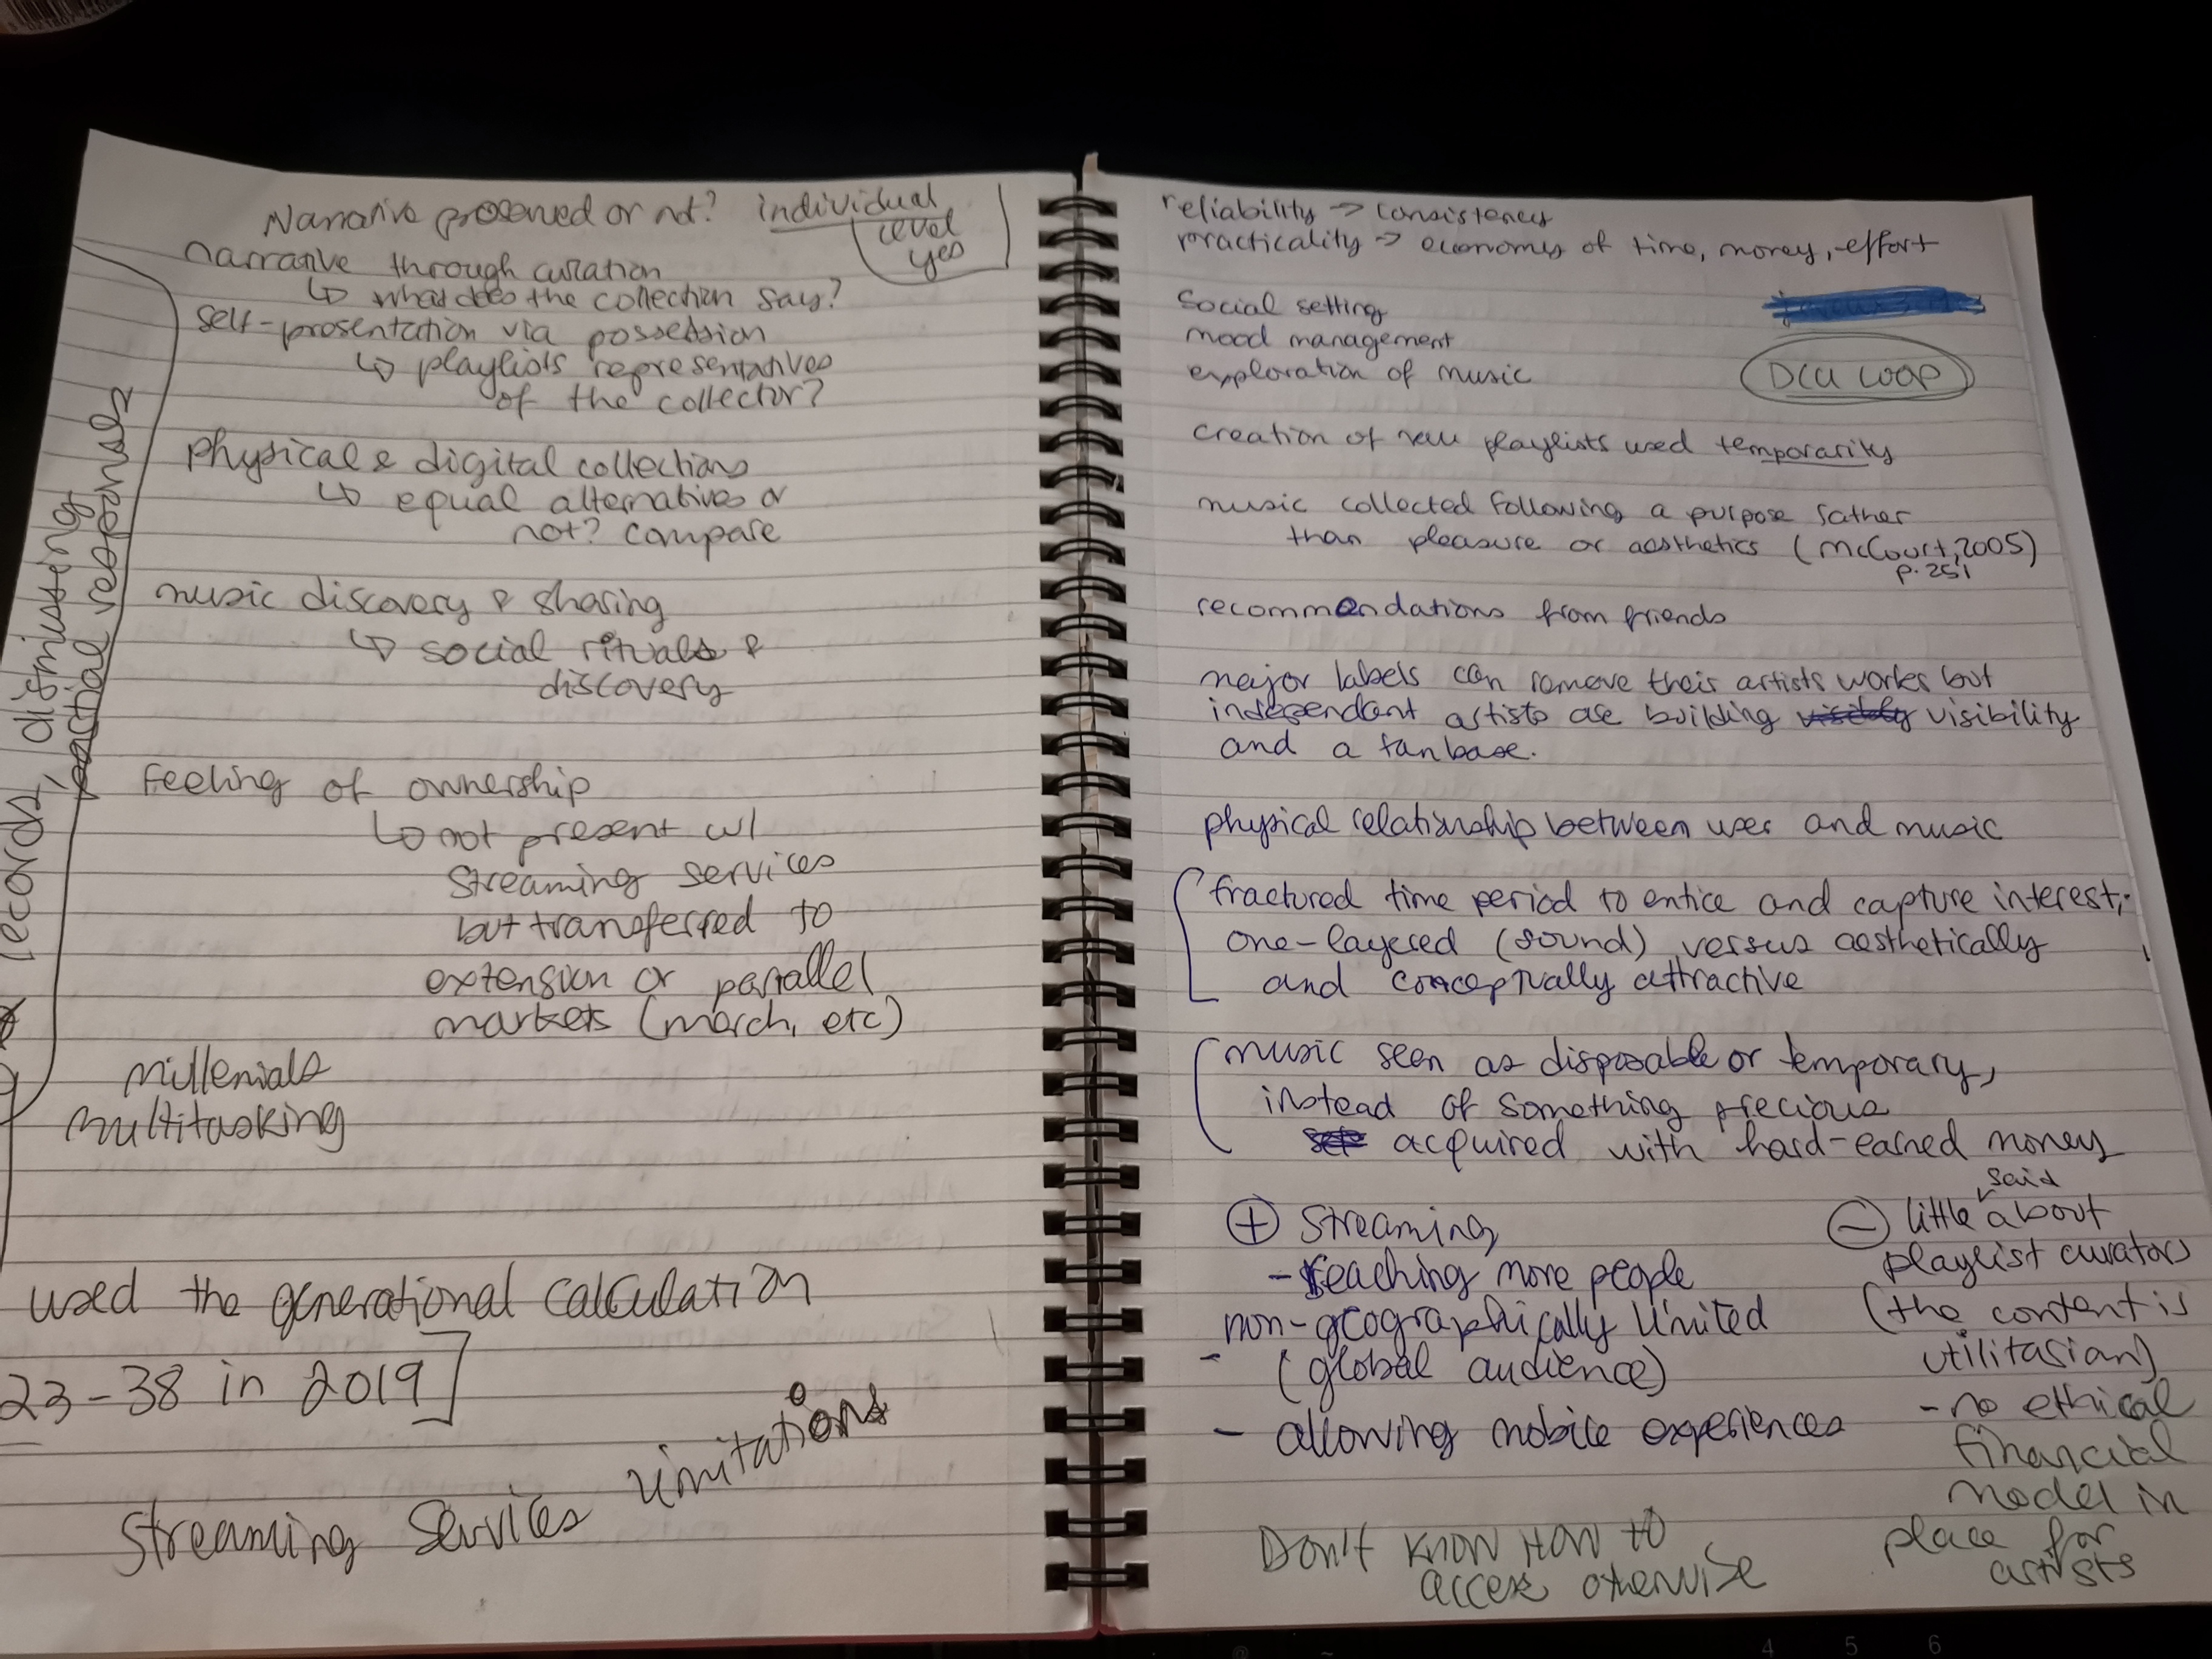 Narrative preserved or not? individual
level
yes
narrative through curation
↳ what does the collection say?
self-presentation via possession
↳ playlists representatives
of the collector?
physical & digital collections
↳ equal alternatives or
not? compare
music discovery & sharing
↳ social rituals &
discovery
Feeling of ownership
↳ not present w/
streaming services
but transferred to
extension or parallel
markets (merch, etc)
millenials
multitasking
used the generational calculation
23-38 in 2019]
Streaming Services limitations
records, dismissing
partial responses
reliability → consistency
practicality → economy of time, money, effort
social setting
mood management
exploration of music
DCU LOOP
creation of new playlists used temporarily
music collected following a purpose rather
than pleasure or aesthetics (McCourt, 2005)
p. 251
recommendations from friends
major labels can remove their artists works but
independant artists are building visibility
and a fanbase.
physical relationship between user and music
fractured time period to entice and capture interest;
one-layered (sound) versus aesthetically
and conceptually attractive
music seen as disposable or temporary,
instead of something precious
acquired with hard-earned money
+ Streaming
- reaching more people
non-geographically limited
- (global audience)
- allowing mobile experiences
Don't know how to
access otherwise
- little said about
playlist curators
(the content is
utilitarian)
- no ethical
financial
model in
place for
artists
4 5 6